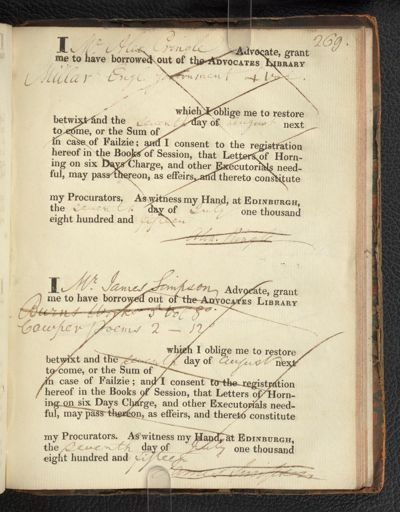 269.
I Mr Alexr Advocate, grant
me to have borrowed out of the ADVOCATES LIBRARY
Millar Engl Government 4 Vols
which I oblige me to restore
betwixt and the seventh day of August next
to come, or the Sum of
in case of Failzie; and I consent to the registration
hereof in the Books of Session, that Letters of Horn-
ing on six Days Charge, and other Executorials need-
ful, may pass thereon, as effeirs, and thereto constitute
my Procurators. As witness my Hand, at EDINBURGH,
the seventh day of July one thousand
eight hundred and fifteen
I Mr. James Simpson Advocate, grant
me to have borrowed out of the ADVOCATES LIBRARY
Burns Works 5 Vol 8o
Cowper Poems 2 - 12o
which I oblige me to restore
betwixt and the seventh day of August next
to come, or the Sum of
in case of Failzie; and I consent to the registration
hereof in the Books of Session, that Letters of Horn-
ing on six Days Charge, and other Executorials need-
ful, may pass thereon, as effeirs, and thereto constitute
my Procurators. As witness my Hand, at EDINBURGH,
the seventh day of July one thousand
eight hundred and fifteen
James Simpson